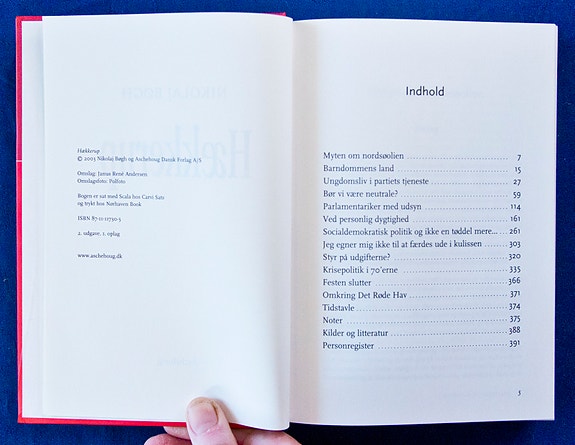 Hækkerup
© 2003 Nikolaj Bøgh og Aschehoug Dansk Forlag A/S
Omslag: Janus René Andersen
Omslagsfoto: Polfoto
Bogen er sat med Scala hos Carvi Sats
og trykt hos Nørhaven Book
ISBN 87-11-11730-5
2. udgave, 1. oplag
www.aschehoug.dk
Indhold
Myten om nordsøolien 7
Barndommens land 15
Ungdomsliv i partiets tjeneste 27
Bør vi være neutrale? 59
Parlamentariker med udsyn 114
Ved personlig dygtighed 161
Socialdemokratisk politik og ikke en tøddel mere... 261
Jeg egner mig ikke til at færdes ude i kulissen 303
Styr på udgifterne? 320
Krisepolitik i 70'erne 335
Festen slutter 366
Omkring Det Røde Hav 371
Tidstavle 374
Noter 375
Kilder og litteratur 388
Personregister 391
5